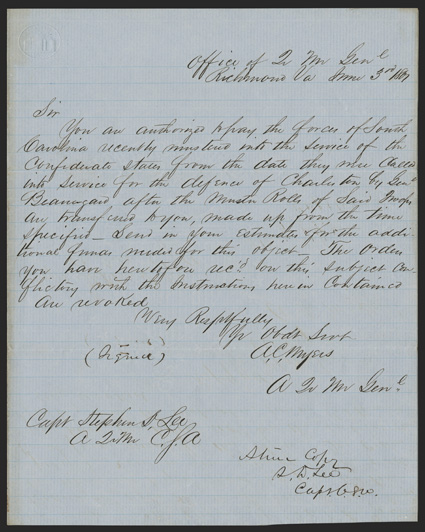 Office of Qr Mr Genl
Richmond Va June 3rd 1861
Sir
You are authorized to pay the forces of South
Carolina recently mustered into the service of the
Confederate States from the date they were Called
into service for the defence of Charleston by Genl
Beauregard after the Muster Rolls of Said troops
are transferred to you, made up from the time
specified – Send in your estimates for the addi-
tional funds needed for this object. The Orders
you have heretofore rec'd on this subject con-
flicting with the Instructions herein Contained
are revoked
Very Respctfully
Yr Obdt Servt
(Signed) A. C. Myers
A Qr Mr Genl
Capt Stephen D. Lee
A Qr Mr C.S.A
A true Copy
S. D. Lee
Capt